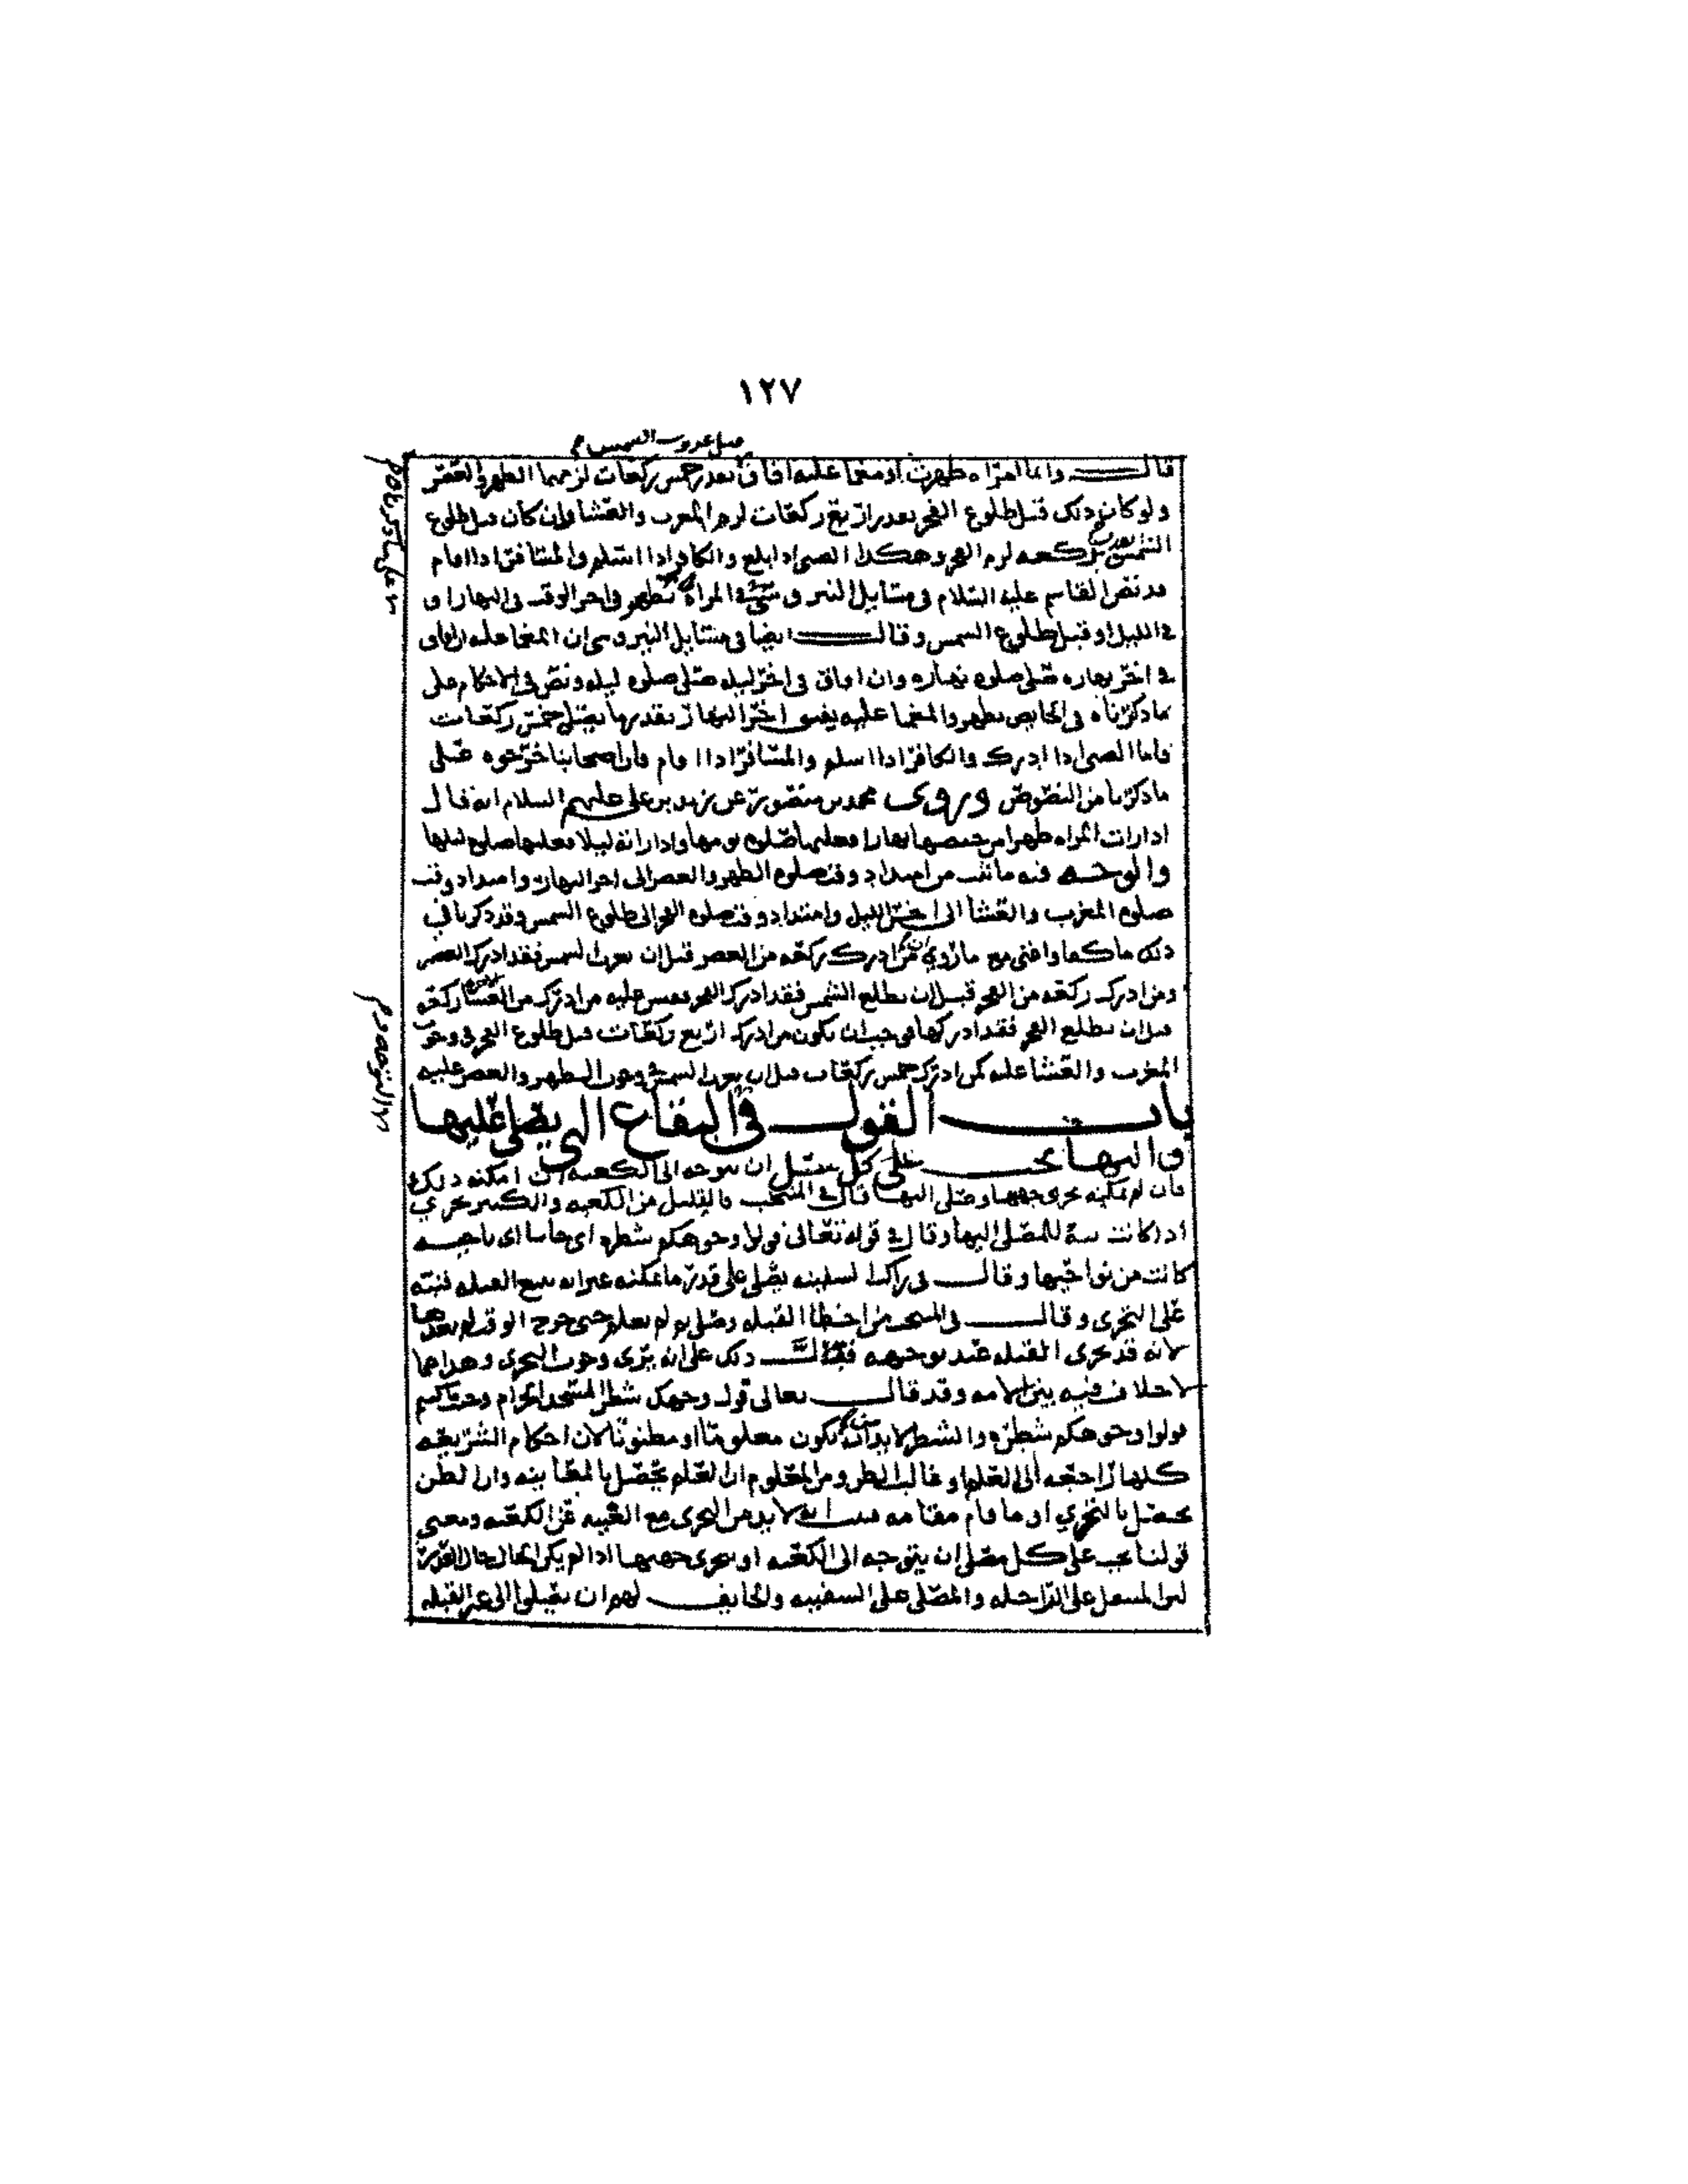 ١٢٧
قبل غروب الشمس
قال وايما امراه طهرت او مغما عليه افاق بعد خمس ركعات لزمهما الظهر والعصر
ولو كان ذلك قبل طلوع الفجر بعد اربع ركعات لزم المغرب والعشا وان كان قبل طلوع
الشمس بركعه لزم الفجر وهكذا الصبي اذا بلغ والكافر اذا اسلم والمسافر اذا اقام
قد نص القاسم عليه السلام في مسايل النيروسي في المراه تطهر في اخر الوقت في النهار او
في الليل او قبل طلوع الشمس وقال ايضا في مسايل النيروسي ان المغما عليه ان افاق
في اخر نهاره صلى صلوه نهاره وان افاق في اخر ليله صلى صلوه ليله ونص في الاحكام على
ما ذكرناه في الحايض تطهر والمغما عليه يفيق اخر النهار بقدر ما يصلي خمس ركعات
فاما الصبي اذا ادرك والكافر اذا اسلم والمسافر اذا اقام فان اصحابنا خرجوه على
ما ذكرنا من النصوص وروى محمد بن منصور عن زيد بن علي عليهم السلام انه قال
اذا رات المراه طهرا من حيضها نهارا فعليها صلوه يومها واذا راته ليلا فعليها صلوه ليلها
والوجه فيه ما ثبت من امتداد وقت صلوه الظهر والعصر الى اخر النهار وامتداد وقت
صلوه المغرب والعشا الى اخر الليل وامتداد وقت صلوه الفجر الى طلوع الشمس وقد ذكرنا في
ذلك ما كفا واغنى مع ما روي ان من ادرك ركعه من العصر قبل ان تغرب الشمس فقد ادرك العصر
ومن ادرك ركعه من الفجر قبل ان تطلع الشمس فقد ادرك الفجر فقس عليه من ادرك من العشا ركعه
قبل ان يطلع الفجر فقد ادركها فوجب ان يكون من ادرك اربع ركعات قبل طلوع الفجر في وجوب
المغرب والعشا عليه كمن ادرك خمس ركعات قبل ان تغرب الشمس في وجوب الظهر والعصر عليه
باب القول في البقاع التي يصلى عليها
واليها يجب على كل مصل ان يتوجه الى الكعبه ان امكنه ذلك
فان لم يمكنه تحرى جهتها وصلى اليها قال في المنتخب والقليل من الكعبه والكثير يجزي
اذا كانت قبله للمصلي اليها وقال في قوله تعالى فولوا وجوهكم شطره اي جانبا اي ناحيه
كانت من نواحيها وقال في راكب السفينه يصلي على قدر ما يمكنه غير انه يتبع القبله فنبه
على التحري وقال في المنتخب من اخطا القبله وصلى ثم لم يعلم حتى خرج الوقت لم يعدها
لانه قد تحرى القبله عند توجهه فدل ذلك على انه يرى وجوب التحري وهذا مما
لا خلاف فيه بين الامه وقد قال تعالى فول وجهك شطر المسجد الحرام وحيث ما كنتم
فولوا وجوهكم شطره والشطر لا بد ان يكون معلوما او مظنونا لان احكام الشريعه
كلها راجعه الى العلم او غالب الظن ومن المعلوم ان العلم يحصل بالمعاينه وان الظن
يحصل بالتحري او ما قام مقامه فثبت انه لا بد من التحري مع الغيبه عن الكعبه ومعنى
قولنا يجب على كل مصلي ان يتوجه الى الكعبه او يتحرى جهتها اذا لم يكن الحال حال العذر
لان المتنفل على الراحله والمصلي على السفينه والخايف لهم ان يصلوا الى غير القبله